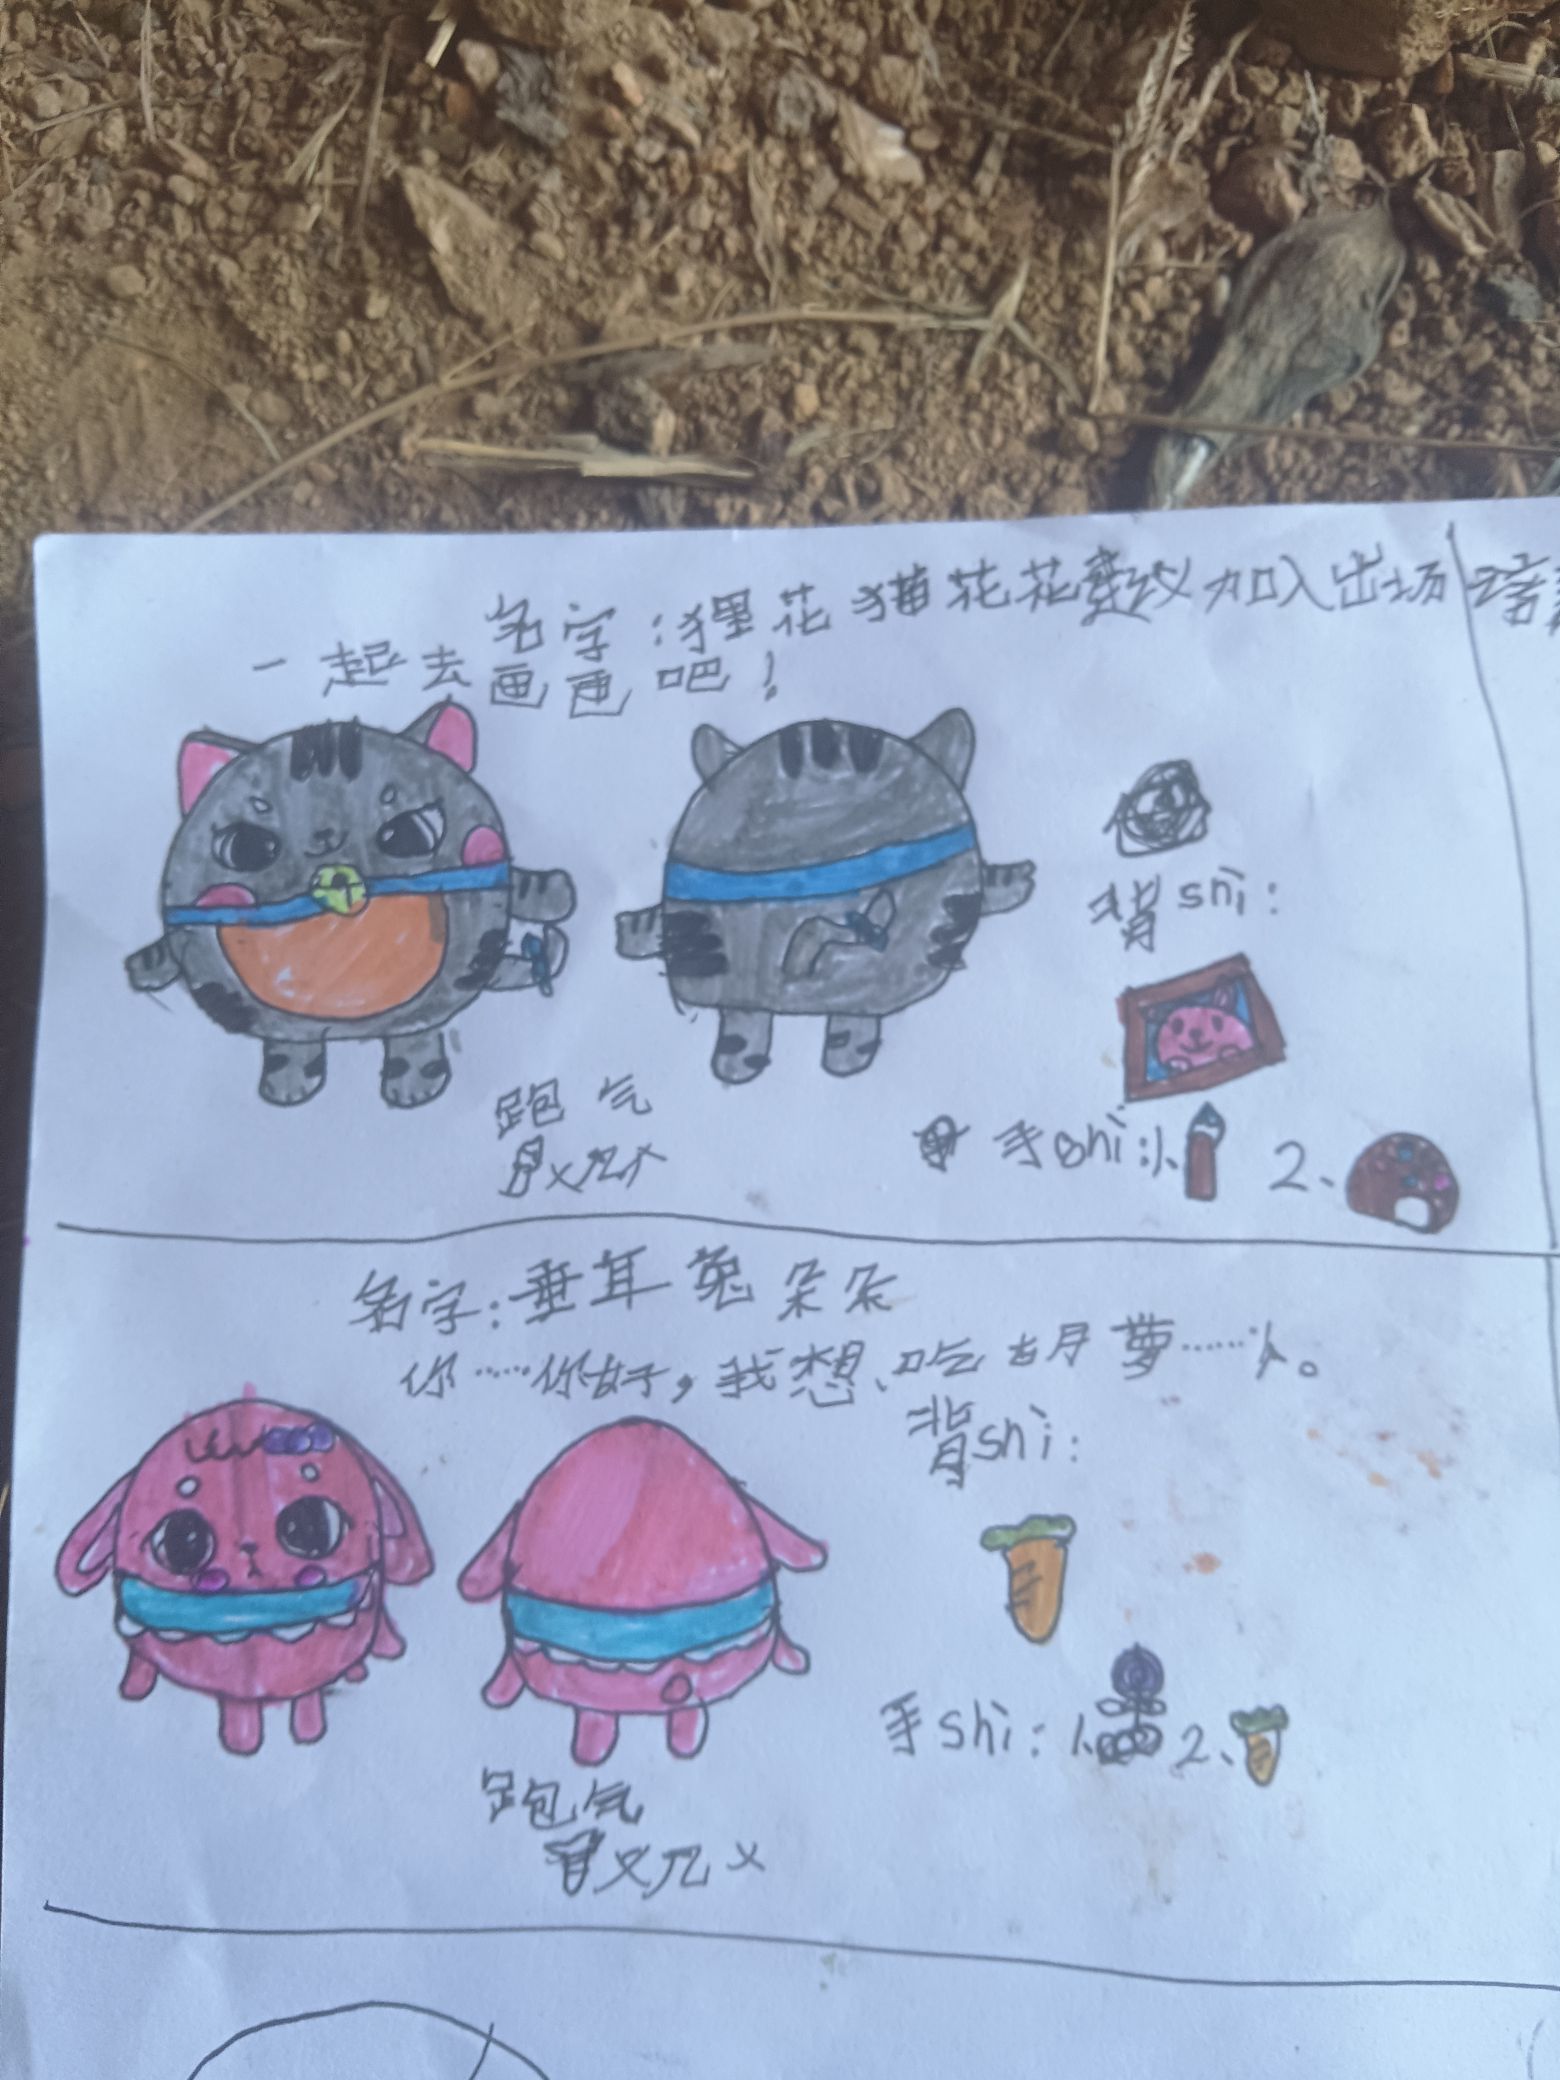 名字:狸花猫花花 加入出场
一起去画画吧!
背shi:
跑气
手shi:1、 2、
名字:垂耳兔朵朵
你……你好,我想、吃胡萝……卜。
背shi:
手shi:1、 2、
跑气